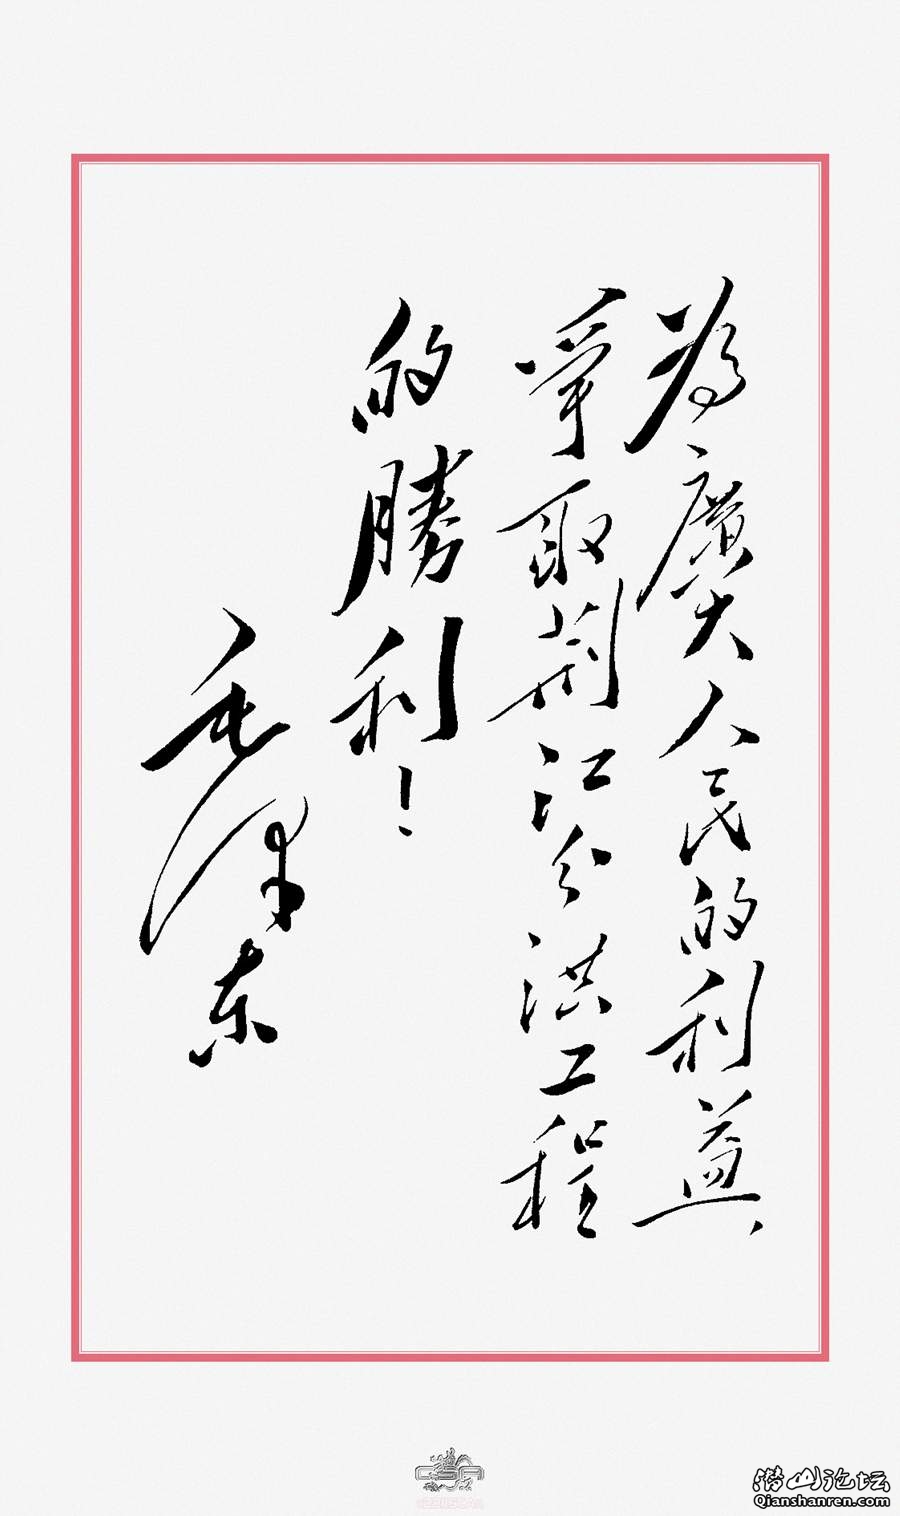 為廣大人民的利益，
爭取荆江分洪工程
的勝利！
毛澤东
潜山论坛
Qianshanren.com